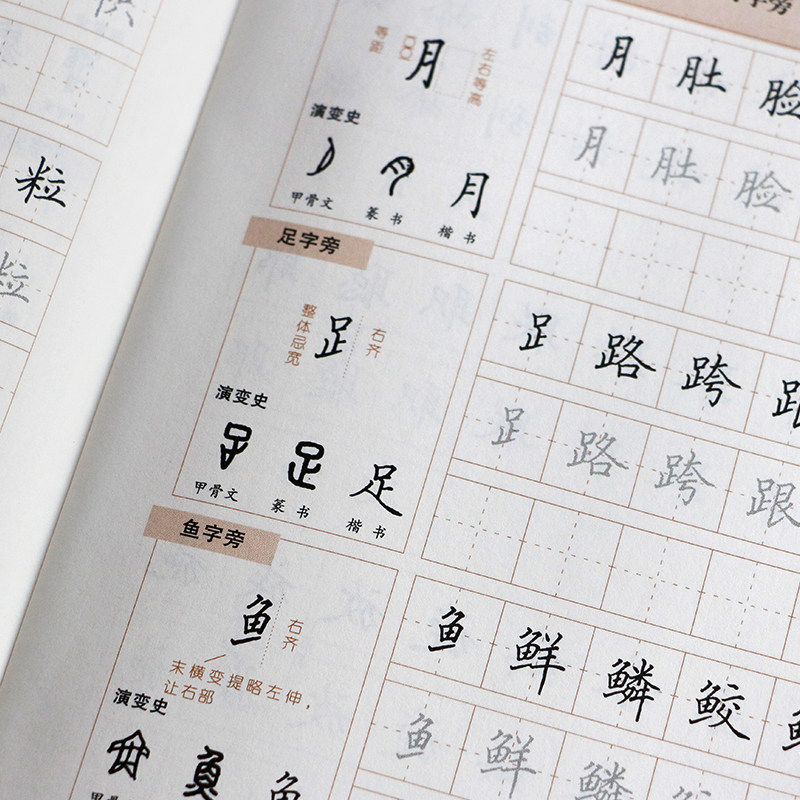 粒
字旁
等距
月
左右等高
演变史
甲骨文 篆书 楷书
月 肚 脸
月 肚 脸
足字旁
整体忌宽
右齐
演变史
足
甲骨文 篆书 楷书
路 跨
路 跨 跟
鱼字旁
鱼
右齐
末横变提略左伸，
让右部
演变史
鱼 鲜 鳞 鲛
鱼 鲜 鳞